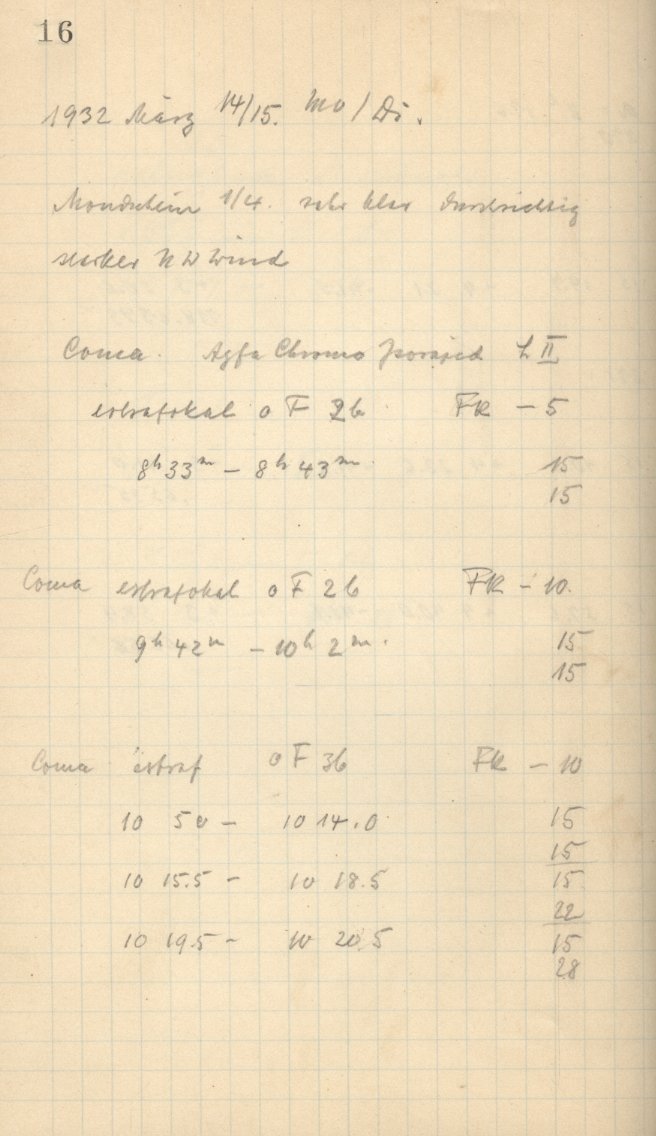 16
1932 März 14/15. Mo/Di.
Mondschein 1/4. sehr klar durchsichtig
starker NW Wind
Coma. Agfa Chromo Isorapid L II
extrafokal o F 2b FK - 5
8h 33m - 8h 43m 15
15
Coma extrafokal o F 2b FK - 10.
9h 42m - 10h 2m. 15
15
Coma extraf o F 3b FK - 10
10 5 0 - 10 14.0 15
15
10 15.5 - 10 18.5 15
22
10 19.5 - 10 20.5 15
28